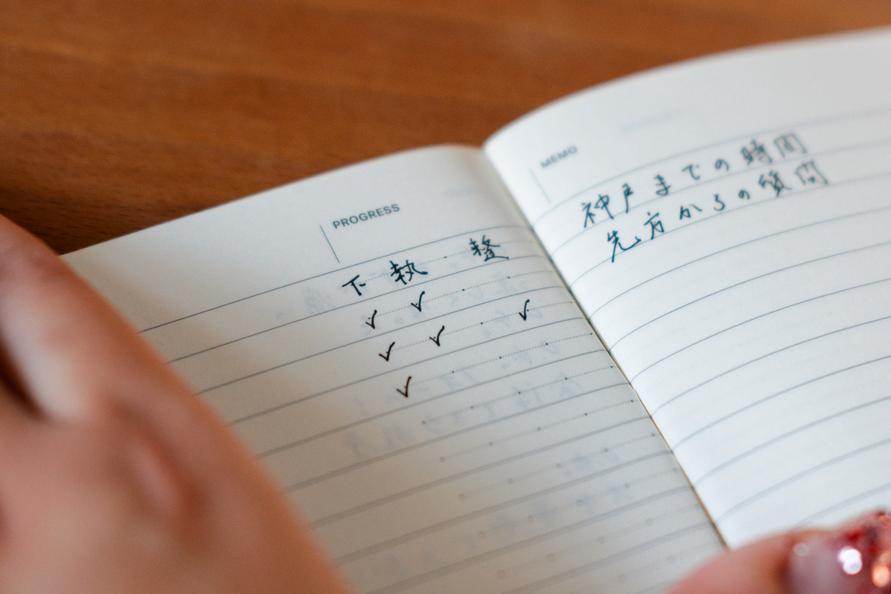 PROGRESS
下 執 整
✓ ✓
✓ ✓ ✓
✓
MEMO
神戸までの時間
先方からの質問